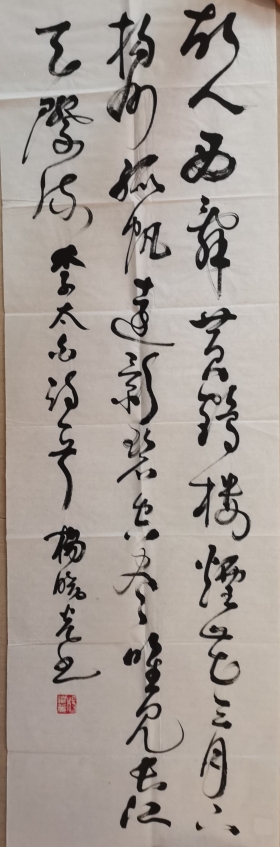 故人西辞黄鹤楼烟花三月下
扬州孤帆远影碧空尽唯见长江
天际流 李太白诗一首 杨晓光书